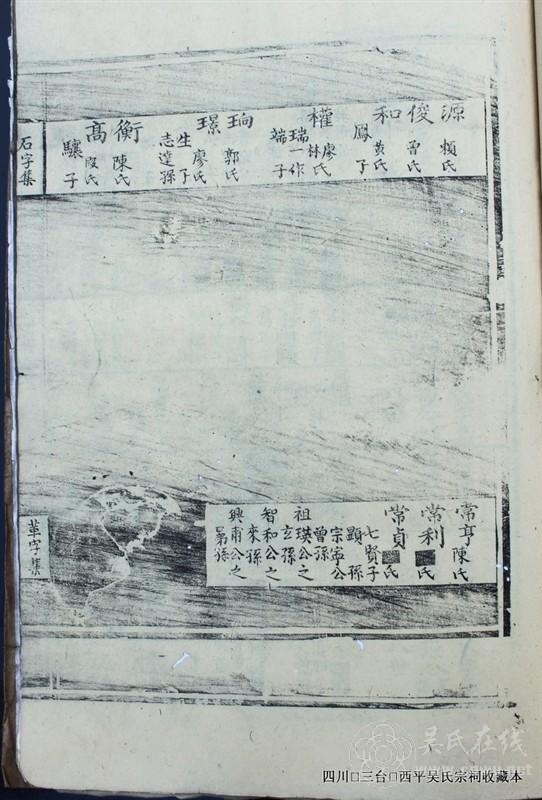 源 賴氏
俊 曾氏
和 黃氏
鳳子
權 廖氏
林氏
瑞一作
端子
珦 郭氏
璟 廖氏
生子
志達孫
衡 陳氏
高 段氏
驤子
石字集
常亨 陳氏
常利 氏
常貞 氏
七賢子
顯孫
宗寧公
曾孫
祖瑛公之
玄孫
智和公之
來孫
興甫公之
晜孫
革字集
吴氏在线
四川□三台□西平吴氏宗祠收藏本